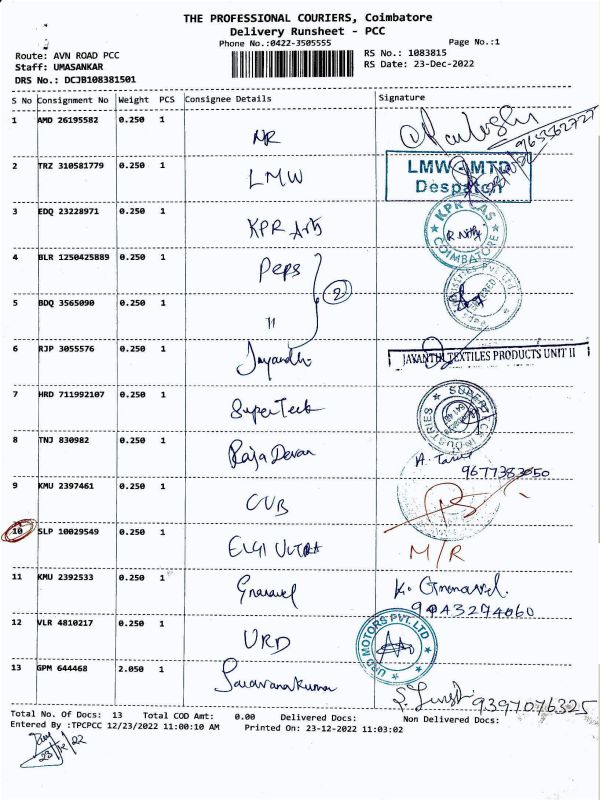 THE PROFESSIONAL COURIERS, Coimbatore
Delivery Runsheet - PCC
Phone No.:0422-3505555 Page No.:1
Route: AVN ROAD PCC RS No.: 1083815
Staff: UMASANKAR RS Date: 23-Dec-2022
DRS No.: DCJB108381501
S No Consignment No Weight PCS Consignee Details Signature
1 AMD 26195582 0.250 1 NR
2 TRZ 310581779 0.250 1 LMW LMW - MTD
Despatch
3 EDQ 23228971 0.250 1 KPR Arts KPR CAS COIMBATORE
4 BLR 1250425889 0.250 1 Peps
2
5 BDQ 3565090 0.250 1 "
6 RJP 3055576 0.250 1 Jayandhi JAYANTHI TEXTILES PRODUCTS UNIT II
7 HRD 711992107 0.250 1 SuperTech
8 TNJ 830982 0.250 1 Raja Devan
9677383050
9 KMU 2397461 0.250 1 CUB
10 SLP 10029549 0.250 1 ELGI ULTRA M/R
11 KMU 2392533 0.250 1 Gnanavel K. Gnanavel
9043274060
12 VLR 4810217 0.250 1 URD URD MOTORS PVT. LTD
13 GPM 644468 2.050 1 Saravanakumar
9397076325
Total No. Of Docs: 13 Total COD Amt: 0.00 Delivered Docs: Non Delivered Docs:
Entered By :TPCPCC 12/23/2022 11:00:10 AM Printed On: 23-12-2022 11:03:02
23/12/22